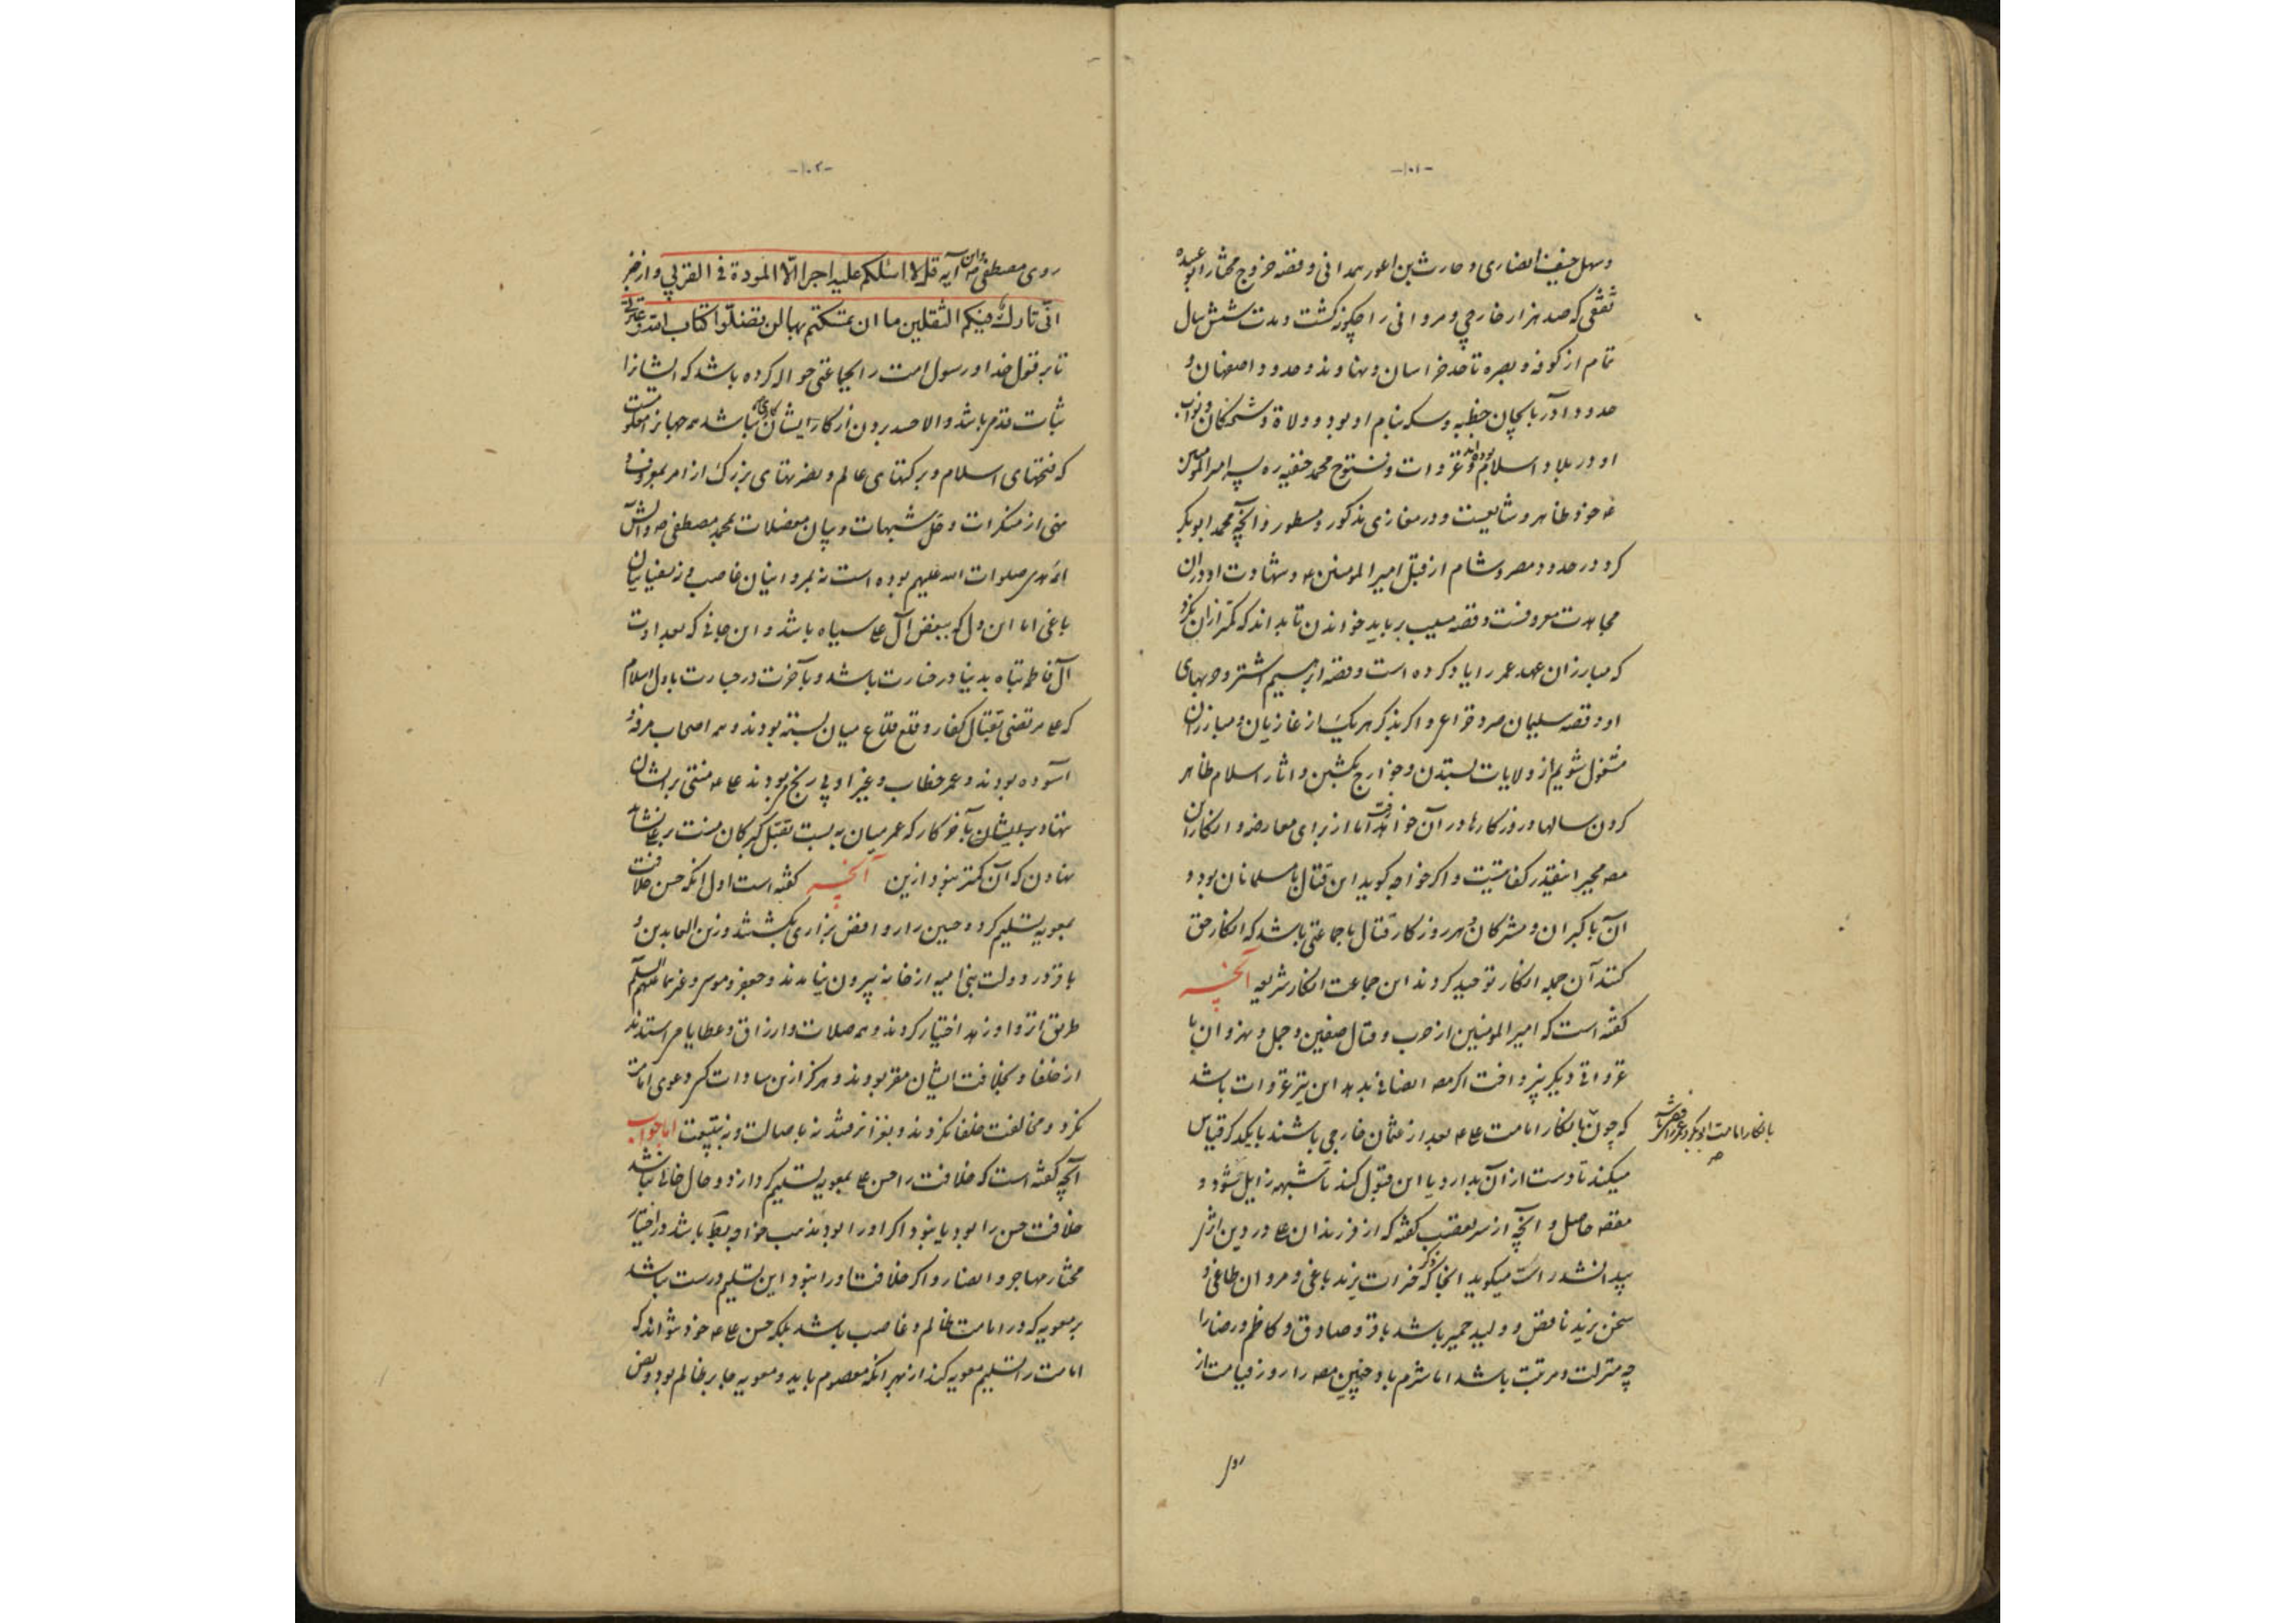 -۱۰۱-
و سهل حنیف انصاری و حارث بن اعور همدانی و قصه خروج مختار ابو عبیده
ثقفی که صد هزار خارجی و مروانی را چکونه کشت و مدت شش سال
تمام از کوفه و بصره تا حد خراسان و نهاوند و حدود اصفهان و
حدود آذربایجان خطبه و سکه بنام او بود و ولاة و شحنکان و نواب
او در بلاد اسلام بودند و غزوات و فتوح محمد حنفیه ره پسر امیر المومنین
ع خود ظاهر و شایعست و در مغازی مذکور و مسطور و آنچه محمد ابو بکر
کرد در حدود مصر و شام از قبل امیر المومنین ع و شهادت او در آن
مجاهدت معروفست و قصه مسیب بر باید خواندن تا بداند که کمتر از آن نکرد
که مبارزان عهد عمر را یاد کرده است و قصه ابرهیم اشتر و حربهای
او و قصه سلیمان صرد خزاعی و اکر بذکر هر یک از غازیان و مبارزان
مشغول شویم از ولایات ستدن و خوارج کشتن و اثار اسلام ظاهر
کردن سالها و روزکارها در آن خواهد رفت اما از برای معارضه و انکار آن
مصه مجبر اینقدر کفایتست و اکر خواجه کوید این قتال با مسلمانان بود و
آن با کبران و مشرکان و هر روزکار قتال با جماعتی باشد که انکار حق
کنند آن جمله انکار توحید کردند این جماعت انکار شریعه آنچه
کفته است که امیر المومنین از حرب و قتال صفین و جمل و نهروان با
غزواتی دیکر نپرداخت اکر مصه انصاف بدهد این نیز غزوات باشد
که چون بانکار امامت علی ع بعد از عثمان خارجی باشند با یکدکر قیاس
بانکار امامت ابو بکر و عمر رافضی باشد
صح
میکند تا دست از آن بدارد یا این قبول کند تا شبهه زایل شود و
مقصه حاصل و آنچه از سر تعصب کفته که از فرزندان علی در دین اثر
پیدا نشد راست میکوید آنجا که ذکر یزید باغی و مروان طاغی و
سخن یزید ناقص و ولید حمیر باشد باقر و صادق و کاظم و رضا را
چه منزلت و مرتبت باشد اما شرم باد چنین مصه را روز قیامت از
روی
-۱۰۲-
روی مصطفی ص و از این آیه قل لا اسئلکم علیه اجرا الّا المودة فی القربی و از خبر
انّی تارک فیکم الثقلین ما ان تمسکتم بهما لن تضلّوا کتاب الله و عترتی
تا بر قول خدا و رسول امت را بجماعتی حواله کرده باشد که ایشانرا
ثبات قدم باشد و الا حسد بردن از کار ایشان کاری نباشد همه جهانرا معلومست
که فتحهای اسلام و برکتهای عالم و نصرتهای بزرک از امر بمعروف و
نهی از منکرات و حلّ شبهات و بیان معضلات بمحمد مصطفی ص و آلش
ائمه هدی صلوات الله علیهم بوده است نه بمروانیان غاصب و نه سفیانیان
باغی اما این دل که ببغض آل علی سیاه باشد و این جانی که بعداوت
آل فاطمه تباه بدنیا در خسارت باشد و بآخرت در حسارت باول اسلام
که علی مرتضی بقتال کفار و قلع قلاع میان بسته بودند و همه اصحاب مرفه و
آسوده بودند و عمر خطاب و غیر او بی رنج بودند علی ع منتی بر ایشان
نهاد بر ایشان بآخر کار که عمر میان به بست بقتل کبرکان منت بر علی نشاید
نهادن که آن کمتر نبود ازین آنچه کفته است اول آنکه حسن خلافت
بمعویه تسلیم کرد و حسین را روافض بزاری بکشتند و زین العابدین و
باقر در دولت بنی امیه از خانه بیرون نیامدند و جعفر و موسی و غیرهما علیهم السلام
طریق انزوا و زهد اختیار کردند و همه صلات و ارزاق و عطایا می استدند
از خلفا و بخلافت ایشان مقر بودند و هرکز ازین سادات کسی دعوی امامت
نکرد و مخالفت خلفا نکردند و بغزا نرفتند نه باصالت و نه بتبعیت اما جواب
آنچه کفته است که خلافت را حسن علی بمعویه تسلیم کرد از دو حال خالی نباشد
خلافت حسن را بود یا نبود اکر او را بود بمذهب خواجه باید باشد و اختیار
مختار مهاجر و انصار و اکر خلافت او را نبود این تسلیم درست نباشد
بر معویه که در امامت ظالم و غاصب باشد بلکه حسن علی ع خود نتواند که
امامت را تسلیم معویه کند از بهر آنکه معصوم باید و معویه جابر ظالم بود و نص